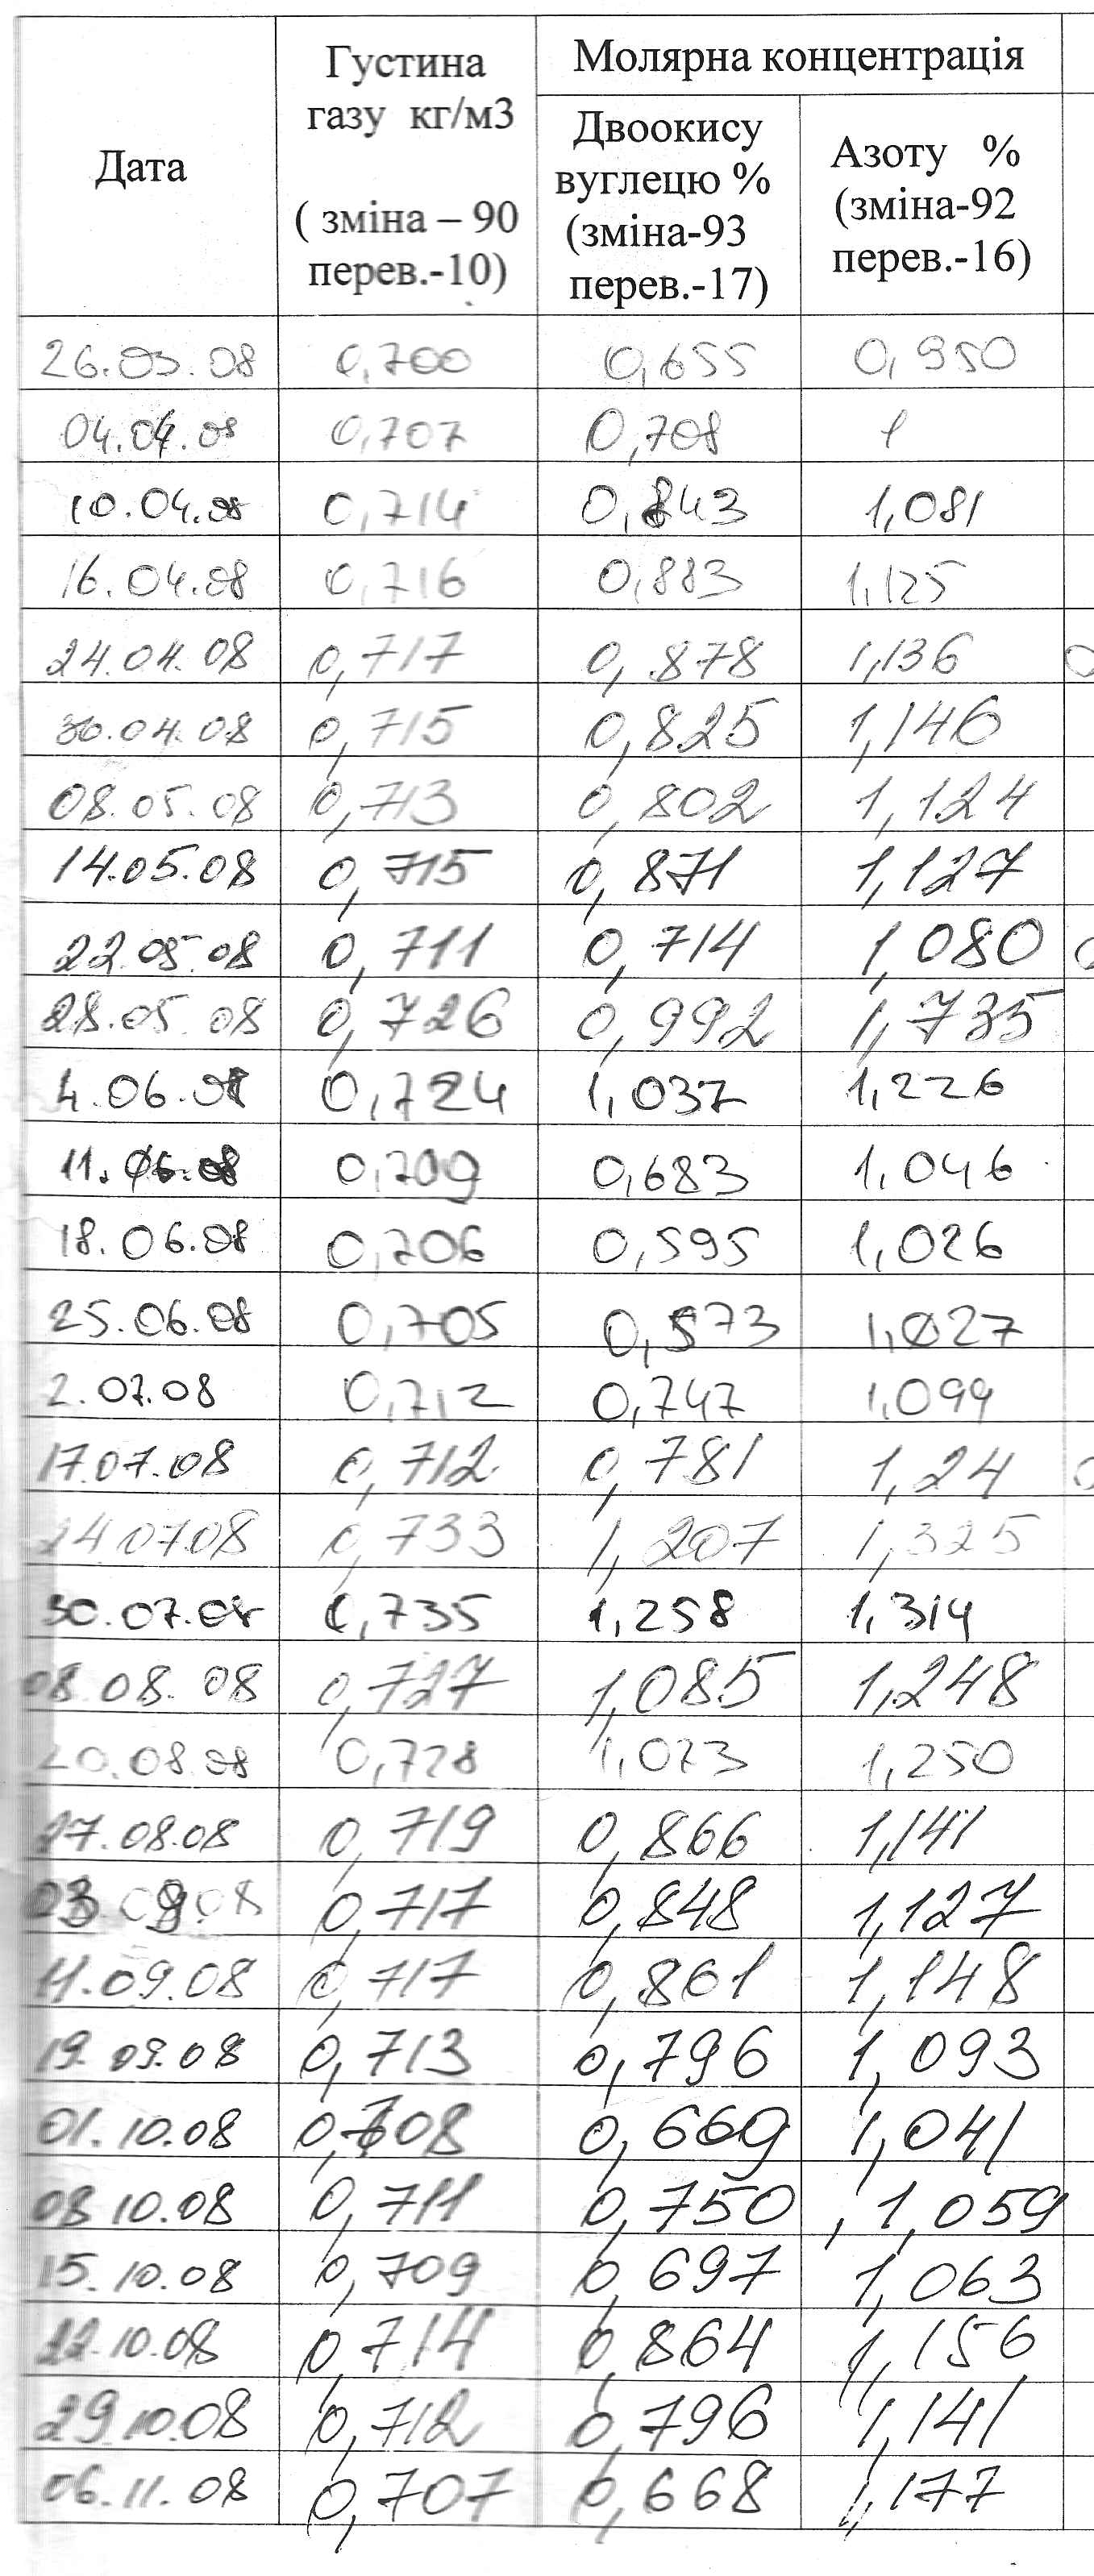 Дата
Густина
газу кг/м3
( зміна – 90
перев.-10)
Молярна концентрація
Двоокису
вуглецю %
(зміна-93
перев.-17)
Азоту %
(зміна-92
перев.-16)
26.03.08 0,700 0,655 0,950
04.04.08 0,707 0,708 1
10.04.08 0,714 0,843 1,081
16.04.08 0,716 0,883 1,125
24.04.08 0,717 0,878 1,136
30.04.08 0,715 0,825 1,146
08.05.08 0,713 0,802 1,124
14.05.08 0,715 0,871 1,127
22.05.08 0,711 0,714 1,080
28.05.08 0,726 0,992 1,735
4.06.08 0,724 1,037 1,226
11.06.08 0,709 0,683 1,046
18.06.08 0,706 0,595 1,026
25.06.08 0,705 0,573 1,027
2.07.08 0,712 0,747 1,099
17.07.08 0,712 0,781 1,24
24.07.08 0,733 1,207 1,325
30.07.08 0,735 1,258 1,314
08.08.08 0,727 1,085 1,248
20.08.08 0,728 1,073 1,250
27.08.08 0,719 0,866 1,141
03.09.08 0,717 0,848 1,127
11.09.08 0,717 0,861 1,148
19.09.08 0,713 0,796 1,093
01.10.08 0,708 0,669 1,041
08.10.08 0,711 0,750 1,059
15.10.08 0,709 0,697 1,063
22.10.08 0,714 0,864 1,156
29.10.08 0,712 0,796 1,141
06.11.08 0,707 0,668 1,177